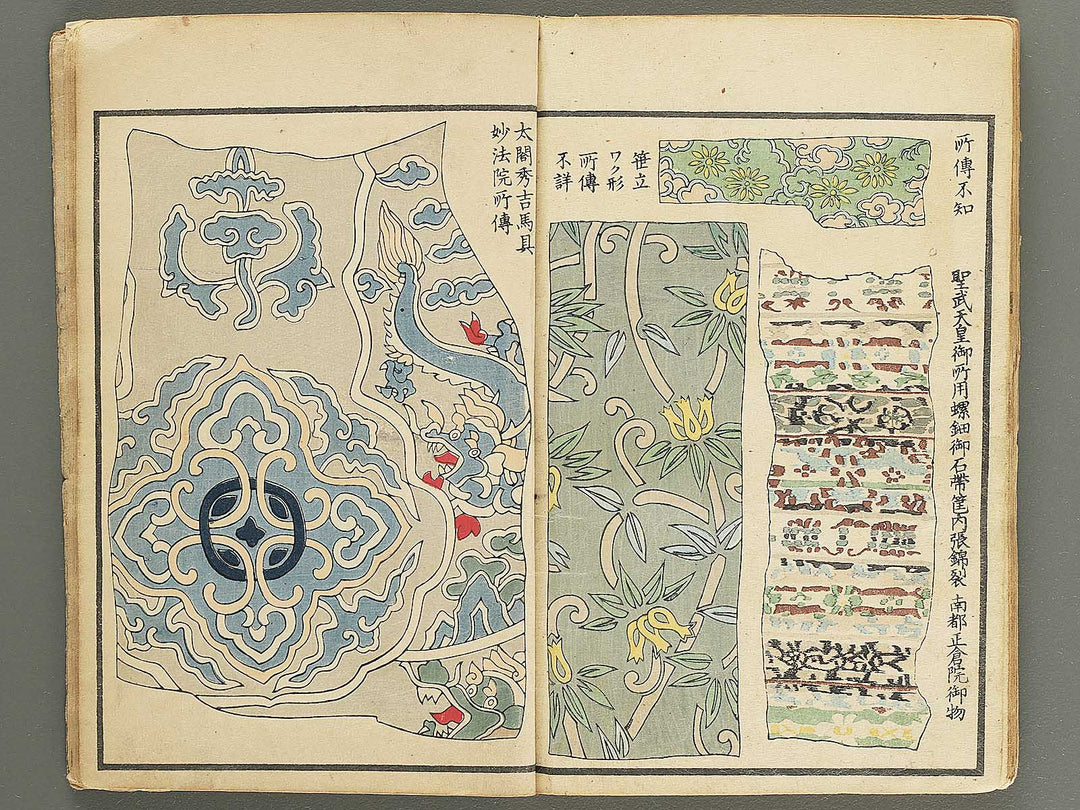 所傳不知
聖武天皇御所用螺鈿御石帶筐内張錦裂 南都正倉院御物
笹立
ワク形
所傳
不詳
太閤秀吉馬具
妙法院所傳